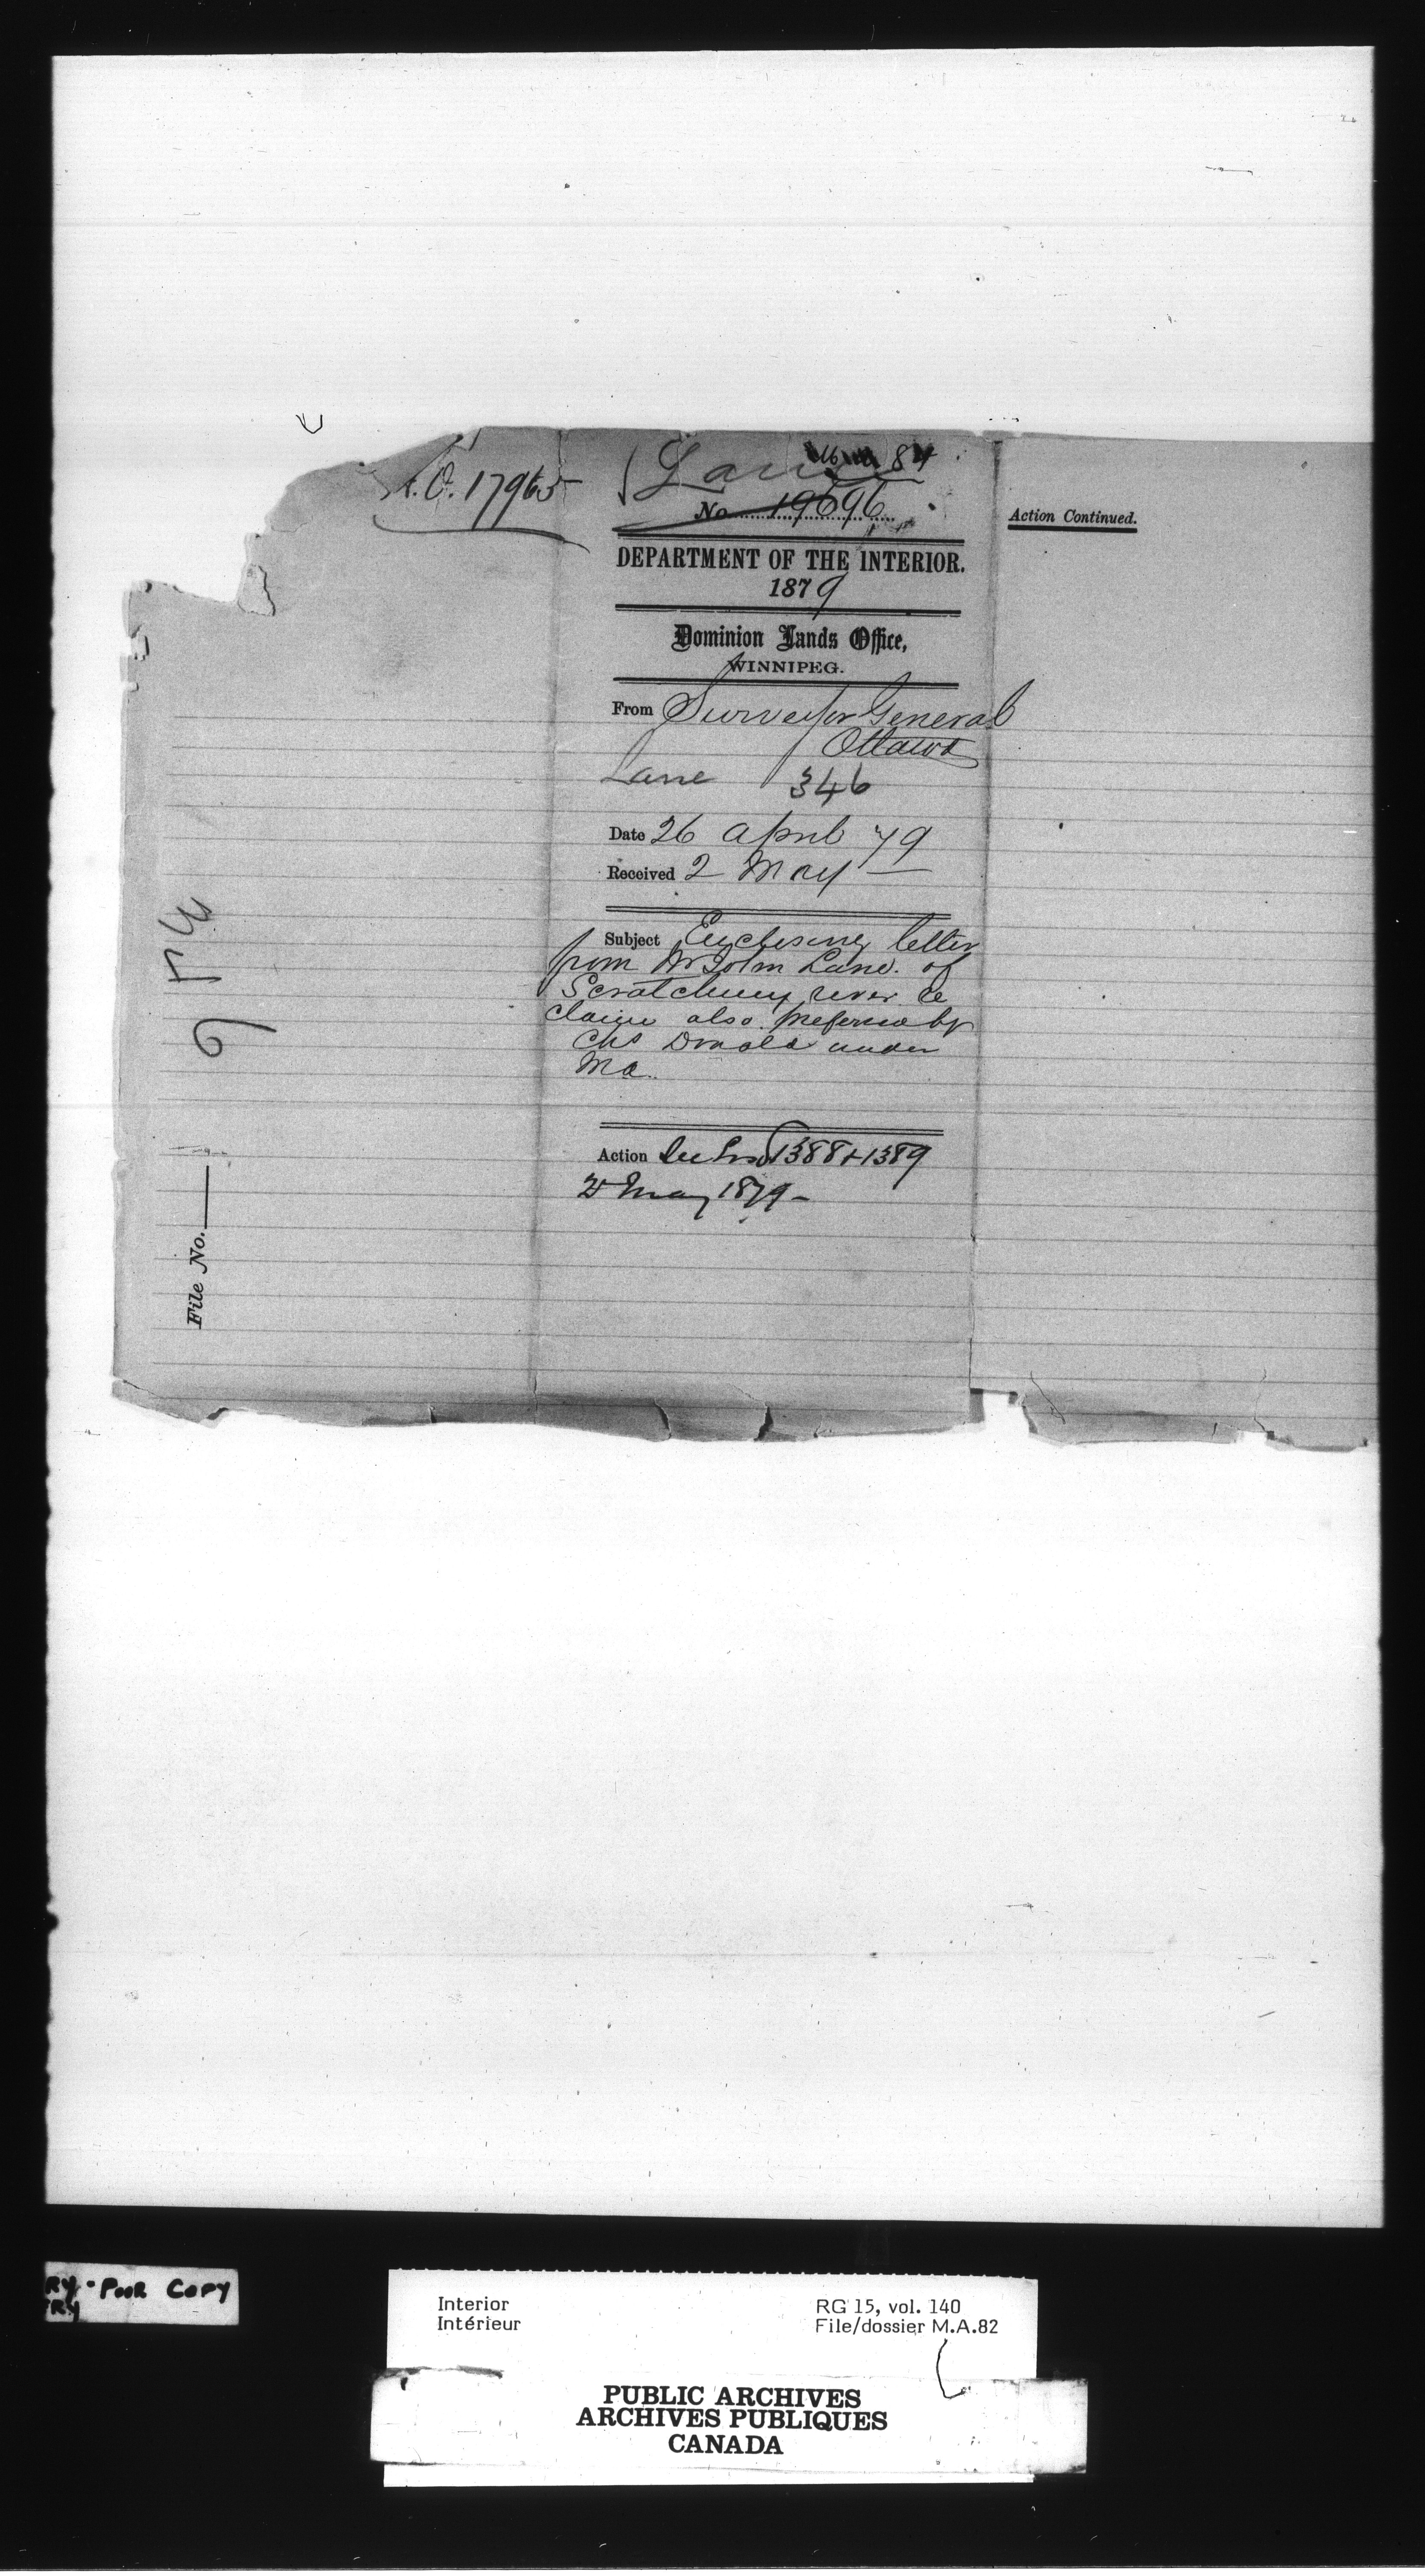 H.O. 17965
Lane 84
No. 19696
DEPARTMENT OF THE INTERIOR.
1879
Dominion Lands Office,
WINNIPEG.
From Surveyor General
Ottawa
Lane 346
Date 26 April 79
Received 2 May
Subject Enclosing letter
from Mr John Lane. of
Scratching river re
claim also preferred by
Chs Donald under
Ma.
Action 1388 + 1389
2 May 1879
Action Continued.
File No.
Poor Copy
Interior
Intérieur
RG 15, vol. 140
File/dossier M.A.82
PUBLIC ARCHIVES
ARCHIVES PUBLIQUES
CANADA